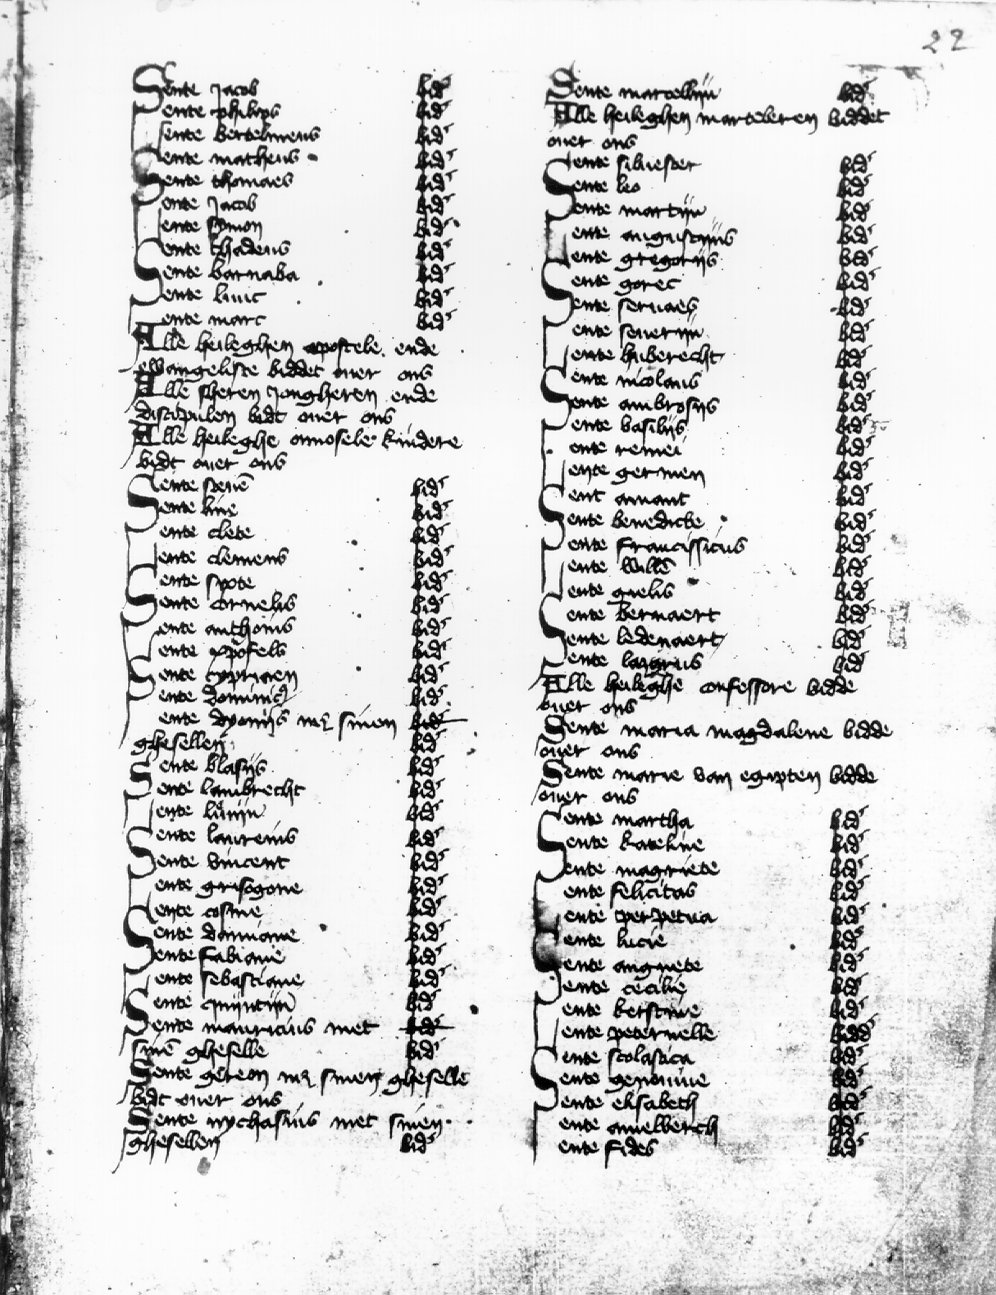 22
Sente Jacob bid'
Sente philips bid'
Sente bertelmeus bid'
Sente matheus bid'
Sente thomaes bid'
Sente Jacob bid'
Sente symon bid'
Sente thadeus bid'
Sente barnaba bid'
Sente luuc bid'
Sente marc bid'
Alle heileghen apostele ende
ewangeliste biddet ouer ons
Alle sheren Jongheren ende
discipulen bidt ouer ons
Alle heileghe onnosele kindere
bidt ouer ons
Sente steuē bid'
Sente line bid'
Sente clete bid'
Sente clemens bid'
Sente sixte bid'
Sente cornelis bid'
Sente anthonis bid'
Sente xp̄ofels bid'
Sente cypriaen bid'
Sente dominic' bid'
Sente dyonijs met sinen bid'
ghesellen bid'
Sente blasijs bid'
Sente lambrecht bid'
Sente liuijn bid'
Sente laureins bid'
Sente vincent bid'
Sente grisogone bid'
Sente cosme bid'
Sente damiane bid'
Sente fabiane bid'
Sente sebastiane bid'
Sente quintijn bid'
Sente mauricius met bid'
sinē gheselle bid'
Sente gereon met sinen gheselle
bidt ouer ons
Sente nychasius met sinen
ghesellen bid'
Sente marcellijn bid'
Alle heileghen marteleren biddet
ouer ons
Sente siluester bid'
Sente leo bid'
Sente martijn bid'
Sente augustijns bid'
Sente gregorijs bid'
Sente gorec bid'
Sente seruaes bid'
Sente seuerijn bid'
Sente huberecht bid'
Sente nicolaus bid'
Sente ambrosijs bid'
Sente basilijs bid'
Sente remei bid'
Sente germen bid'
Sent amant bid'
Sente benedicte bid'
Sente franciscus bid'
Sente willē bid'
Sente gielis bid'
Sente bernaert bid'
Sente ledenaert bid'
Sente lazarus bid'
Alle heileghe confessore bidde
ouer ons
Sente maria magdalene bidde
ouer ons
Sente marie van egipten bidde
ouer ons
Sente martha bid'
Sente kateline bid'
Sente magriete bid'
Sente felicitas bid'
Sente perpetua bid'
Sente lucie bid'
Sente angnete bid'
Sente cecilie bid'
Sente kerstine bid'
Sente peternelle bidd'
Sente scolastica bid'
Sente genouiue bid'
Sente elisabeth bid'
Sente amelberch bid'
Sente fides bid'